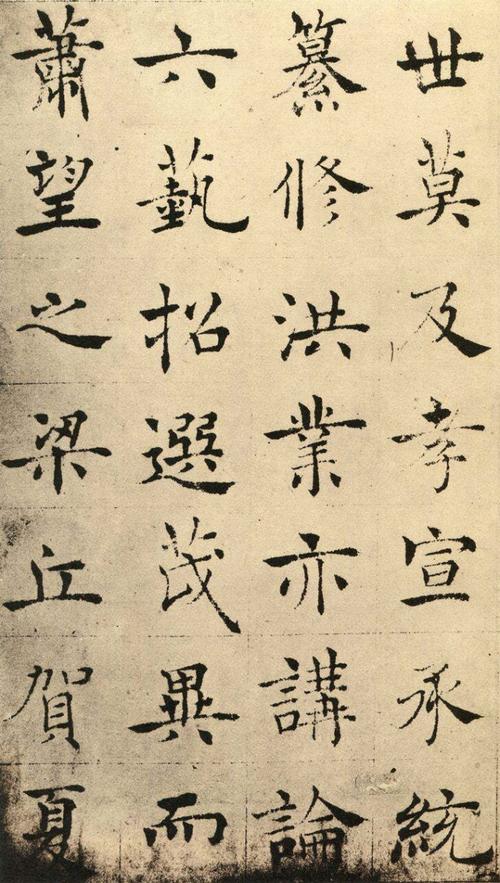 世莫及孝宣承統
纂修洪業亦講論
六藝招選茂異而
蕭望之梁丘賀夏